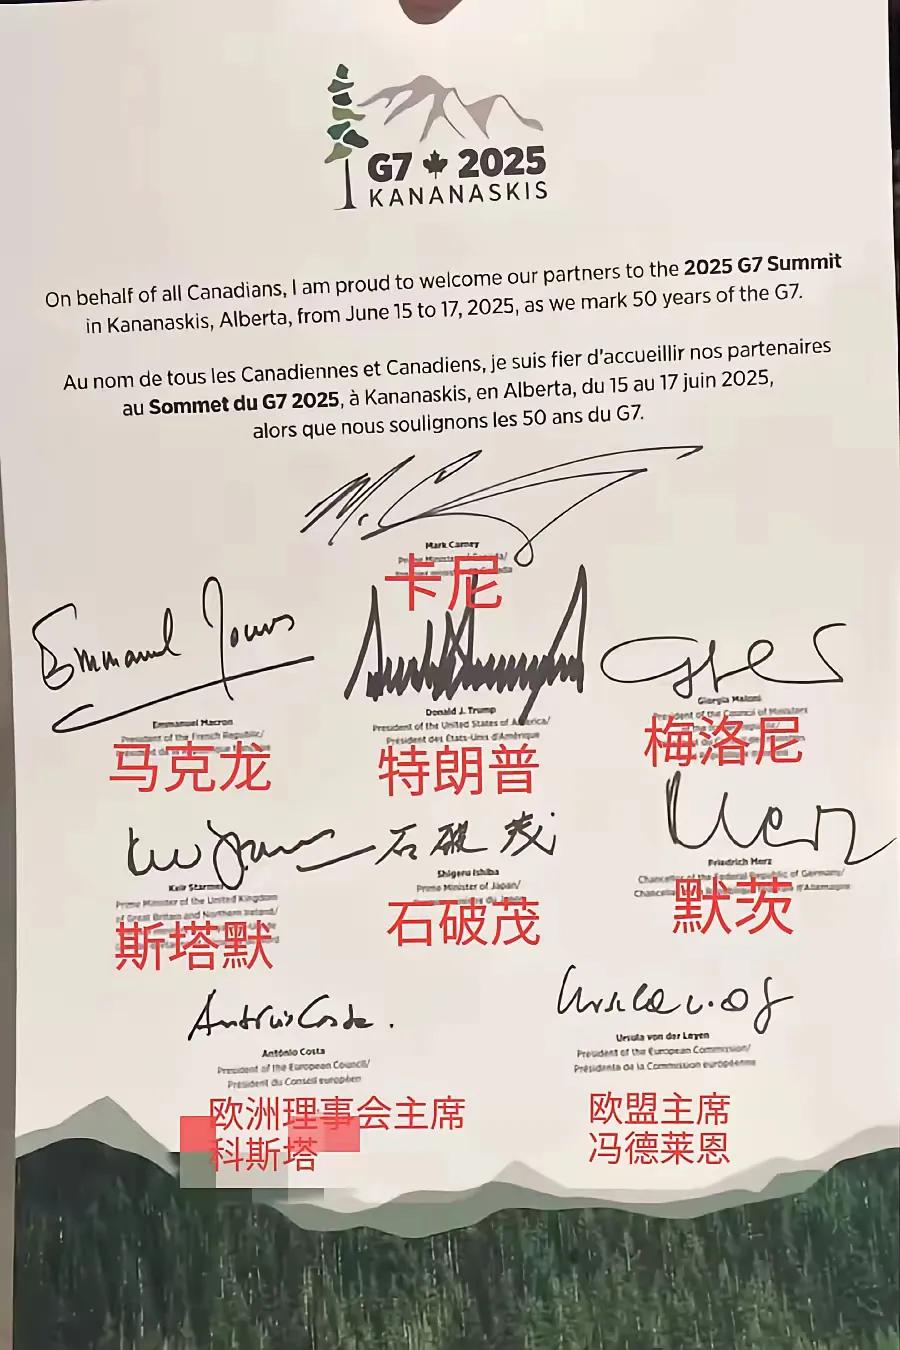 G7 2025
KANANASKIS
On behalf of all Canadians, I am proud to welcome our partners to the 2025 G7 Summit
in Kananaskis, Alberta, from June 15 to 17, 2025, as we mark 50 years of the G7.
Au nom de tous les Canadiennes et Canadiens, je suis fier d'accueillir nos partenaires
au Sommet du G7 2025, à Kananaskis, en Alberta, du 15 au 17 juin 2025,
alors que nous soulignons les 50 ans du G7.
M. C
Mark Carney
卡尼
Emmanuel
Emmanuel Macron
President of the French Republic/
马克龙
Donald J. Trump
President of the United States of America/
Président des États-Unis d'Amérique
特朗普
Giorgia Meloni
President of the Council of Ministers
梅洛尼
Keir Starmer
Prime Minister of the United Kingdom
of Great Britain and Northern Ireland/
斯塔默
石破茂
Shigeru Ishiba
Prime Minister of Japan/
石破茂
Merz
Friedrich Merz
Chancellor of the Federal Republic of Germany/
默茨
António Costa
António Costa
President of the European Council/
Président du Conseil européen
欧洲理事会主席
科斯塔
Ursula v. d
Ursula von der Leyen
President of the European Commission/
Présidente de la Commission européenne
欧盟主席
冯德莱恩